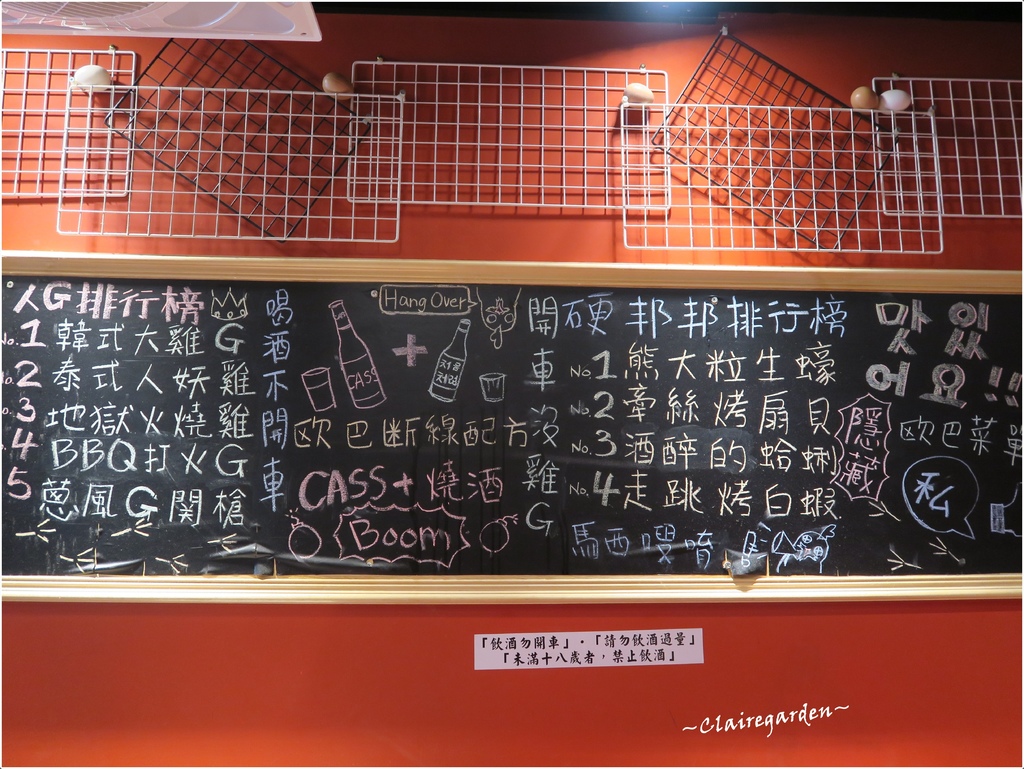 人G排行榜
No.1 韓式大雞G
No.2 泰式人妖雞
No.3 地獄火燒雞
4 BBQ打火G
5 蔥風G関槍
喝酒不開車
Hang Over
CASS
+
처음처럼
欧巴断線配方
CASS+燒酒
Boom
開車沒雞G
硬邦邦排行榜
No.1 熊大粒生蠔
No.2 牽絲烤扇貝
No.3 酒醉的蛤蜊
No.4 走跳烤白蝦
馬西嗖唷
맛있
어요!!
隱藏
欧巴菜單
私
「飲酒勿開車」・「請勿飲酒過量」
「未滿十八歲者，禁止飲酒」
~Clairegarden~